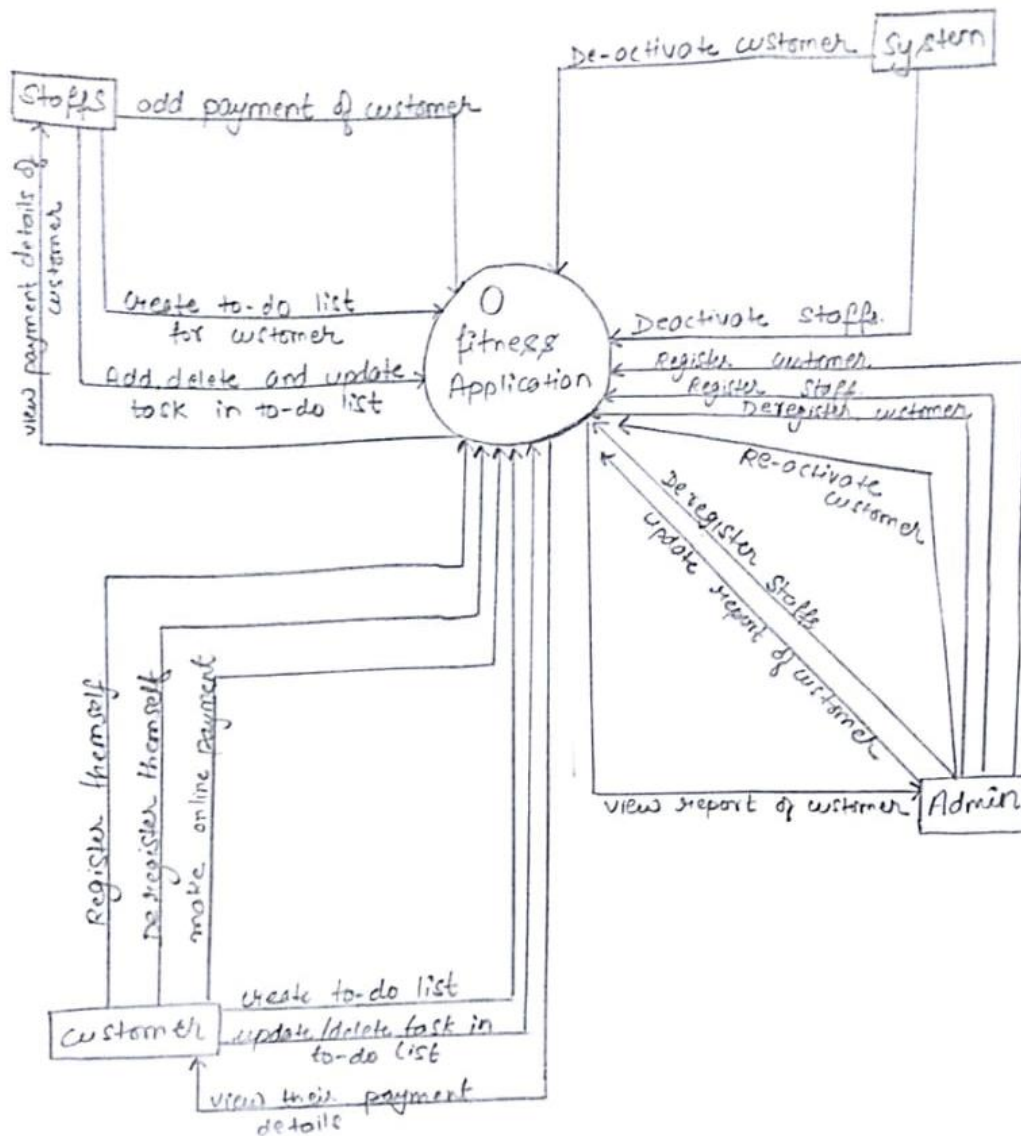 System
De-activate customer
Staffs
add payment of customer
view payment details of
customer
create to-do list
for customer
Add, delete and update
task in to-do list
0
fitness
Application
Deactivate Staffs.
Register customer
Register Staff.
Deregister customer
Re-activate
customer
Deregister Staffs
update report of customer
view report of customer
Admin
Register themself
Deregister themself
make online payment
customer
create to-do list
update/delete task in
to-do list
view their payment
details